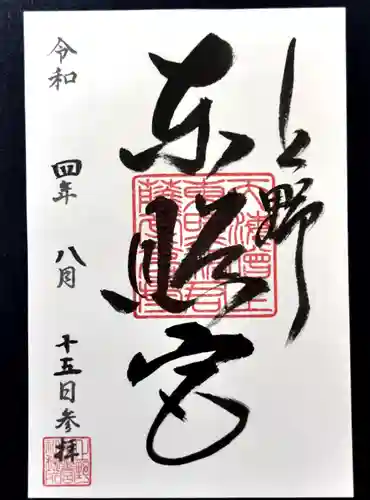 上野
東照宮
令和四年八月十五日参拝